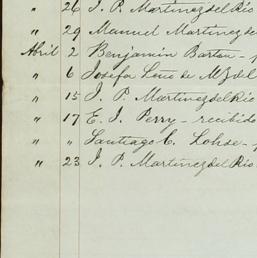 " 26 J. P. Martinez del Rio
" 29 Manuel Martinez de
Abril 2 Benjamin Barton -
" 6 Josefa de M. del
" 15 J. P. Martinez del Rio
" 17 E. J. Perry - recibido
" " Santiago C. Lohse -
" 23 J. P. Martinez del Rio